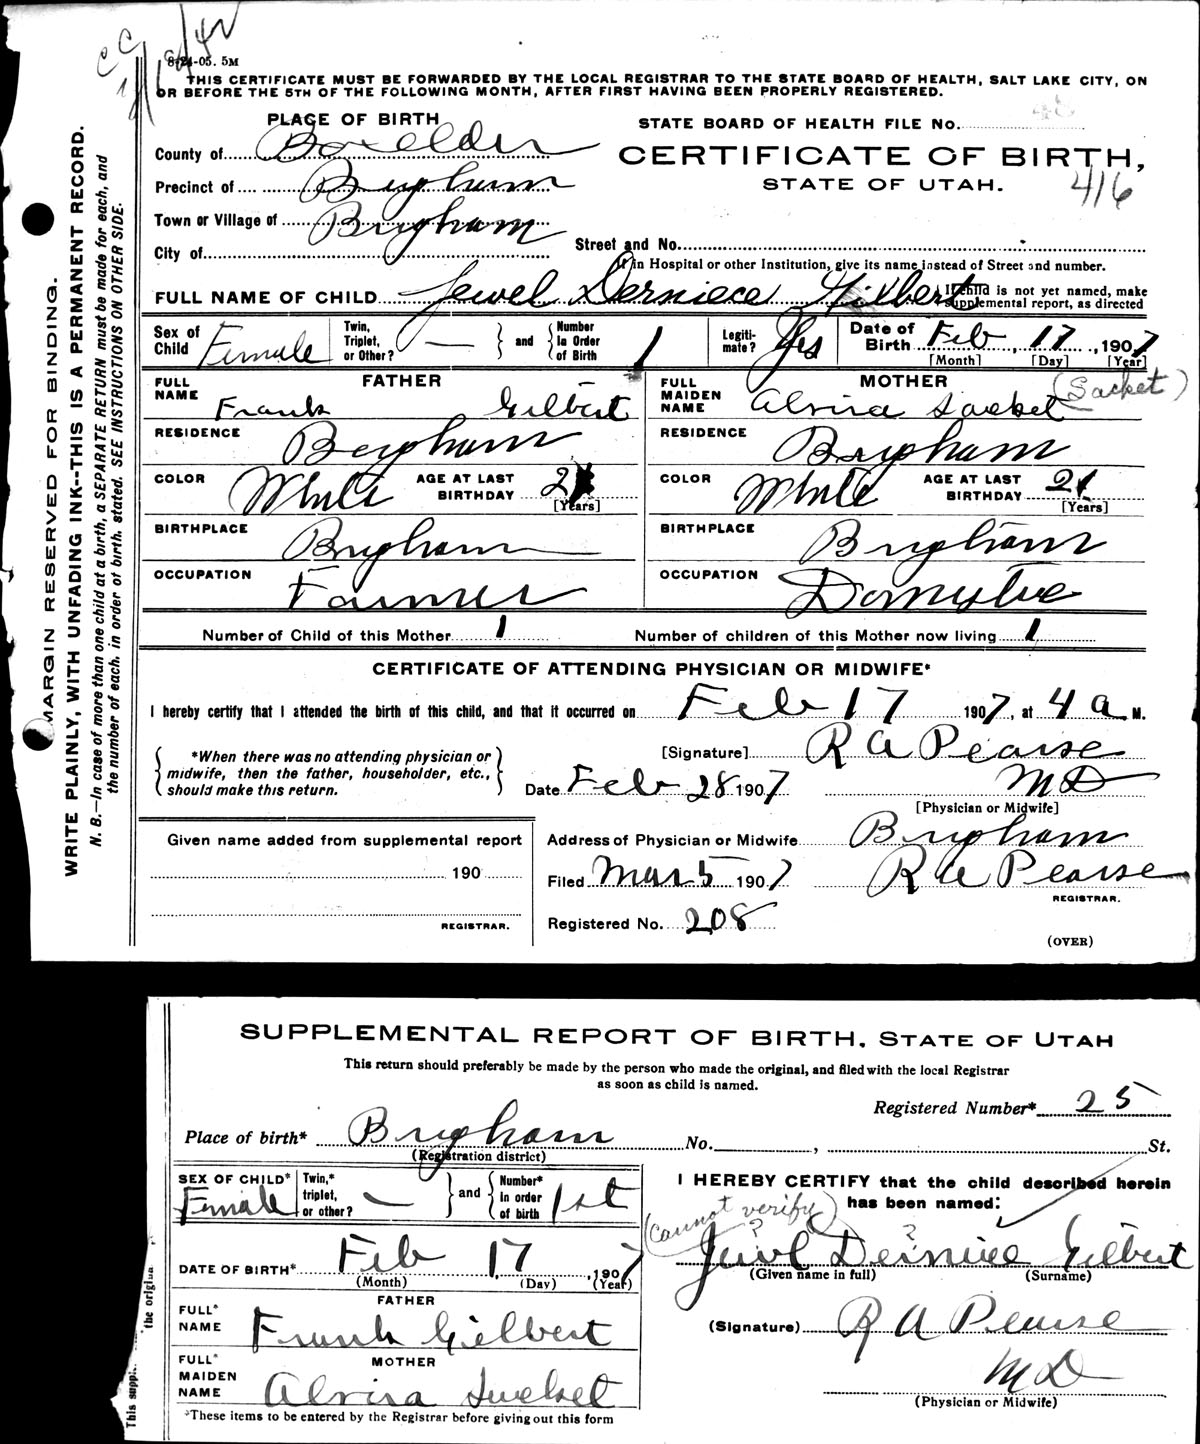 8-21-05. 5M
THIS CERTIFICATE MUST BE FORWARDED BY THE LOCAL REGISTRAR TO THE STATE BOARD OF HEALTH, SALT LAKE CITY, ON
OR BEFORE THE 5TH OF THE FOLLOWING MONTH, AFTER FIRST HAVING BEEN PROPERLY REGISTERED.
MARGIN RESERVED FOR BINDING.
WRITE PLAINLY, WITH UNFADING INK--THIS IS A PERMANENT RECORD.
N. B.—In case of more than one child at a birth, a SEPARATE RETURN must be made for each, and
the number of each, in order of birth, stated. SEE INSTRUCTIONS ON OTHER SIDE.
PLACE OF BIRTH
STATE BOARD OF HEALTH FILE No.
County of Boxelder
CERTIFICATE OF BIRTH,
STATE OF UTAH.
416
Precinct of Brigham
Town or Village of Brigham
City of
Street and No.
If in Hospital or other Institution, give its name instead of Street and number.
FULL NAME OF CHILD Jewel Derniece Gilbert
If child is not yet named, make
supplemental report, as directed
Sex of Child Female Twin, Triplet, or Other? — and Number in Order of Birth 1 Legiti-mate? Yes Date of Birth Feb 17, 1907
[Month] [Day] [Year]
FATHER MOTHER (Sacket)
FULL NAME Frank Gilbert FULL MAIDEN NAME Alvira Sacket
RESIDENCE Brigham RESIDENCE Brigham
COLOR White AGE AT LAST BIRTHDAY 2 [Years] COLOR White AGE AT LAST BIRTHDAY 21 [Years]
BIRTHPLACE Brigham BIRTHPLACE Brigham
OCCUPATION Farmer OCCUPATION Domestic
Number of Child of this Mother 1 Number of children of this Mother now living 1
CERTIFICATE OF ATTENDING PHYSICIAN OR MIDWIFE*
I hereby certify that I attended the birth of this child, and that it occurred on Feb 17 1907, at 4 a M.
*When there was no attending physician or
midwife, then the father, householder, etc.,
should make this return.
[Signature] R A Pearse
M D
Date Feb 28 1907
[Physician or Midwife]
Given name added from supplemental report
190
REGISTRAR.
Address of Physician or Midwife Brigham
Filed Mar 5 1907 R A Pearse
REGISTRAR.
Registered No. 208
(OVER)
SUPPLEMENTAL REPORT OF BIRTH, STATE OF UTAH
This return should preferably be made by the person who made the original, and filed with the local Registrar
as soon as child is named.
Registered Number* 25
Place of birth* Brigham No. , St.
(Registration district)
SEX OF CHILD* Female Twin,* triplet, or other? — and Number* in order of birth 1st
I HEREBY CERTIFY that the child described herein
has been named:
(Cannot verify)
? ?
Jewel Derniece Gilbert
(Given name in full) (Surname)
DATE OF BIRTH* Feb 17, 1907
(Month) (Day) (Year)
FATHER
FULL* NAME Frank Gilbert
(Signature) R A Pearse
M D
(Physician or Midwife)
MOTHER
FULL* MAIDEN NAME Alvira Sacket
*These items to be entered by the Registrar before giving out this form
This suppl
the origin